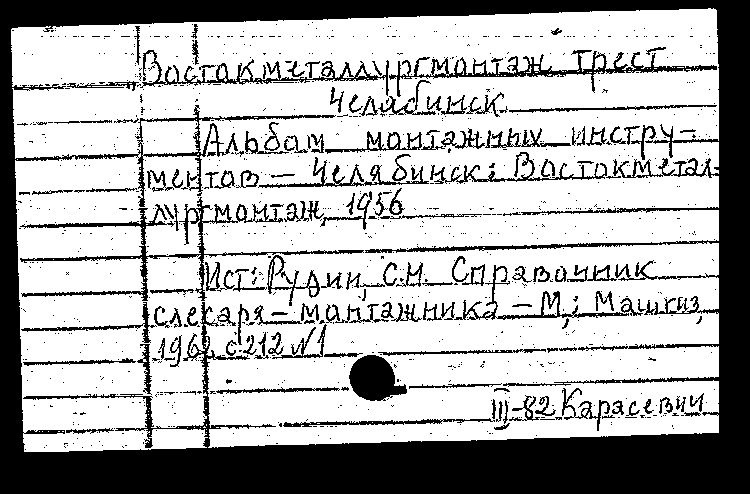 Востокметаллургмонтаж, трест
Челябинск.
Альбом монтажных инстру-
ментов – Челябинск: Востокметал-
лургмонтаж, 1956
Ист: Рудин, С.Н. Справочник
слесаря-монтажника – М,: Машгиз,
с 212 №1
III-82 Карасевич